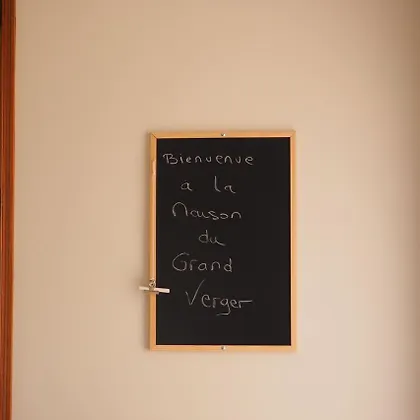 Bienvenue
a la
Maison
du
Grand
Verger